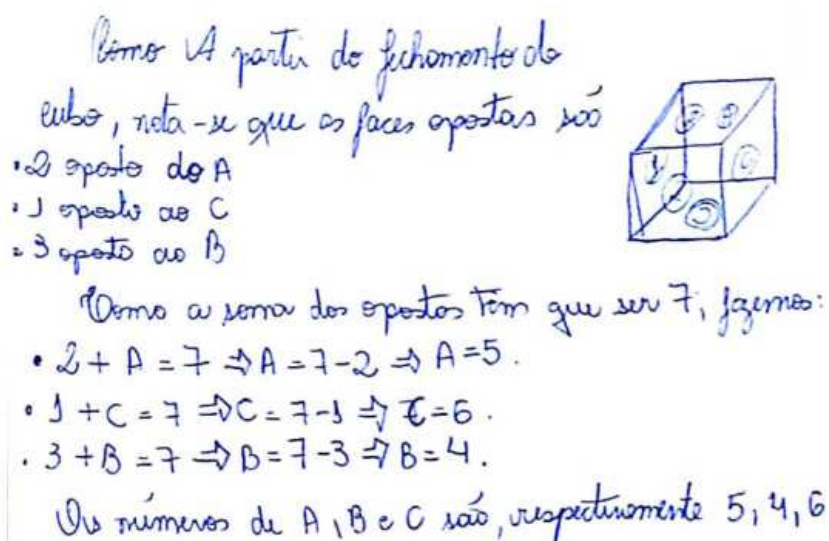 Como A partir do fechamento do
cubo, nota-se que as faces opostas são
• 2 oposto do A
• 1 oposto ao C
• 3 oposto ao B
Como a soma dos opostos tem que ser 7, fazemos:
• 2 + A = 7 ⇒ A = 7-2 ⇒ A = 5.
• 1 + C = 7 ⇒ C = 7-1 ⇒ C = 6.
• 3 + B = 7 ⇒ B = 7-3 ⇒ B = 4.
Os números de A, B e C são, respectivamente 5, 4, 6